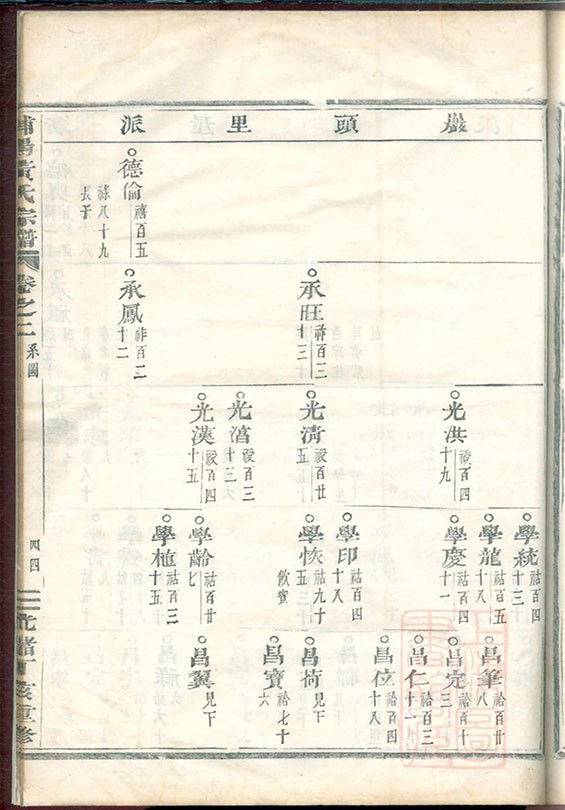 巖頭里派
德倫 禧百五
祿八十九
長子
承旺 祥百三
十三
承鳳 祥百二
十二
光洪 祾百四
十九
光清 祾百廿
五
光 祾百三
十三
光漢 祾百四
十五
學統 祜百四
十三
學龍 祜百五
十八
學慶 祜百四
十一
學印 祜百四
十八
學恢 祜九十
五
學齡 祜百廿
七
學植 祜百三
十五
昌筆 祫百廿
八
昌定 祫百十
三
昌仁 祫百三
十一
昌位 祫百四
十八
昌荷 見下
昌寶 祫七十
六
昌翼 見下
浦陽黃氏宗譜 卷之二 系圖
四四
光緒丁亥重修